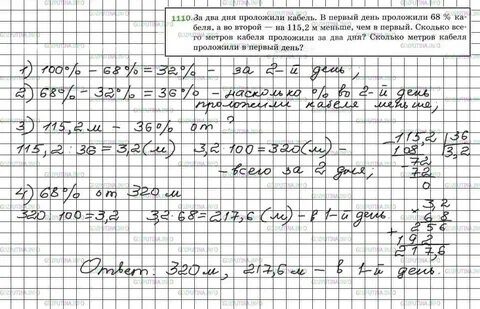 1110. За два дня проложили кабель. В первый день проложили 68 % ка-
беля, а во второй — на 115,2 м меньше, чем в первый. Сколько все-
го метров кабеля проложили за два дня? Сколько метров кабеля
проложили в первый день?
1) 100% - 68% = 32% - за 2-й день,
2) 68% - 32% = 36% - насколько % во 2-й день
проложили кабеля меньше,
3) 115,2 м - 36% от ?
115,2 : 36 = 3,2 (м) 3,2 · 100 = 320 (м) -
- всего за 2 дня,
115,2 | 36
108 | 3,2
72
72
0
4) 68% от 320 м
320 : 100 = 3,2 3,2 · 68 = 217,6 (м) - в 1-й день
× 3,2
68
+ 256
192
217,6
Ответ: 320 м, 217,6 м - в 1-й день.